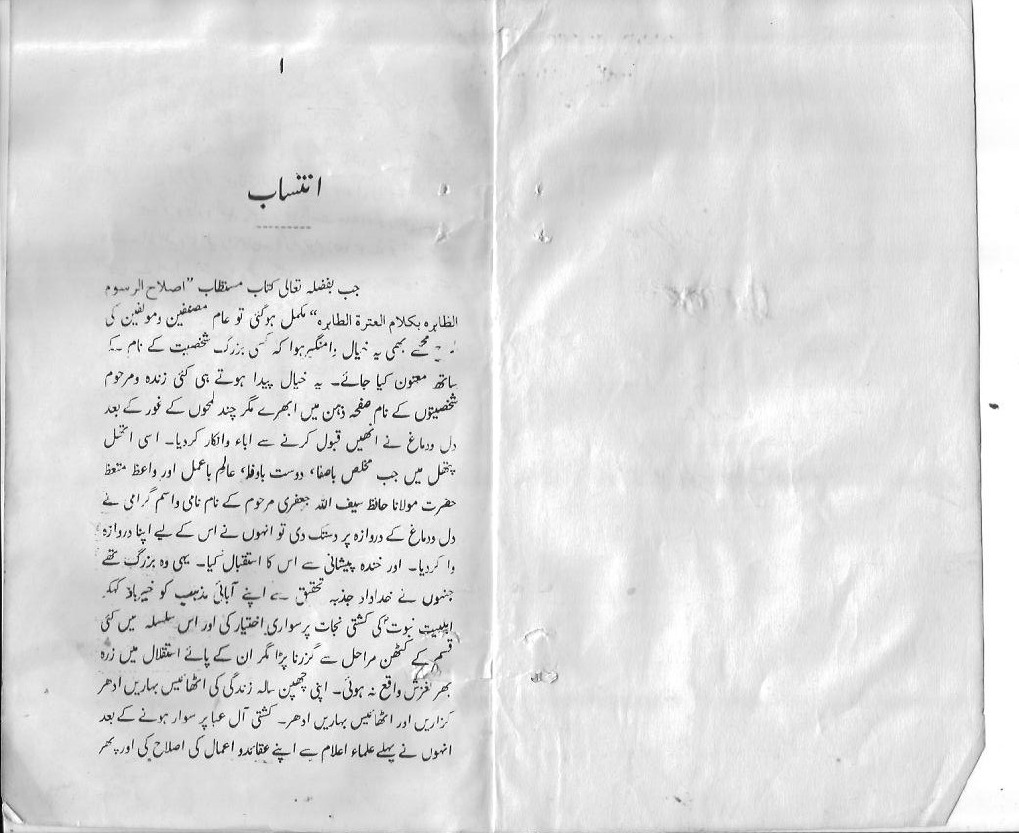 ۱
انتساب
جب بفضلہ تعالیٰ کتاب مستطاب ”اصلاح الرسوم
الظاہرہ بکلام العترۃ الطاہرہ“ مکمل ہوگئی تو عام مصنفین ومولفین کی
مجھے بھی یہ خیال دامنگیر ہوا کہ کسی بزرگ شخصیت کے نام کے
ساتھ معنون کیا جائے۔ یہ خیال پیدا ہوتے ہی کئی زندہ ومرحوم
شخصیتوں کے نام صفحہ ذہن میں ابھرے مگر چند لمحوں کے غور کے بعد
دل ودماغ نے انھیں قبول کرنے سے اباء وانکار کردیا۔ اسی اتھل
پتھل میں جب مخلص باصفا، دوست باوفا، عالم باعمل اور واعظ متعظ
حضرت مولانا حافظ سیف اللہ جعفری مرحوم کے نام نامی واسم گرامی نے
دل ودماغ کے دروازہ پر دستک دی تو انہوں نے اس کے لیے اپنا دروازہ
وا کردیا۔ اور خندہ پیشانی سے اس کا استقبال کیا۔ یہی وہ بزرگ تھے
جنہوں نے خداداد جذبہ تحقیق سے اپنے آبائی مذہب کو خیرباد کہکر
اہلبیت نبوتؑ کی کشتی نجات پر سواری اختیار کی اور اس سلسلہ میں کئی
قسم کے کٹھن مراحل سے گزرنا پڑا مگر ان کے پائے استقلال میں زرہ
بھر لغزش واقع نہ ہوئی۔ اپنی چھپن سالہ زندگی کی اٹھائیس بہاریں ادھر
گزاریں اور اٹھائیس بہاریں ادھر۔ کشتی آل عبا پر سوار ہونے کے بعد
انہوں نے پہلے علماء اعلام سے اپنے عقائدو اعمال کی اصلاح کی اور پھر